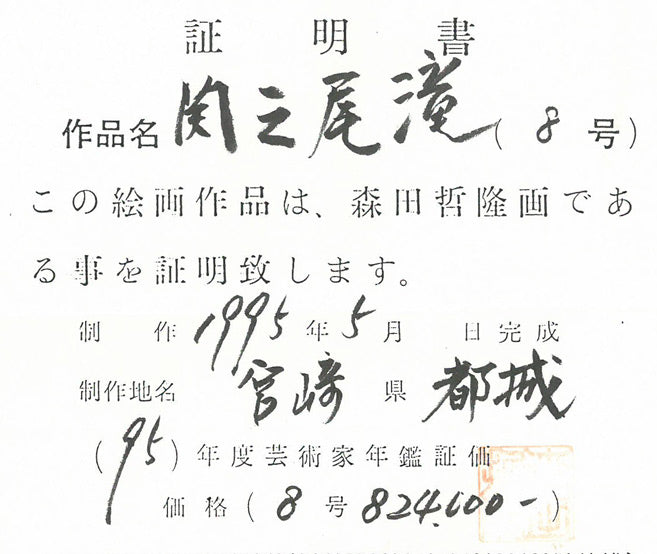 証明書
作品名 関之尾滝 (8号)
この絵画作品は、森田哲隆画であ
る事を証明致します。
制作 1995年5月 日完成
制作地名 宮崎県 都城
(95)年度芸術家年鑑証価
価格(8号 824.600-)